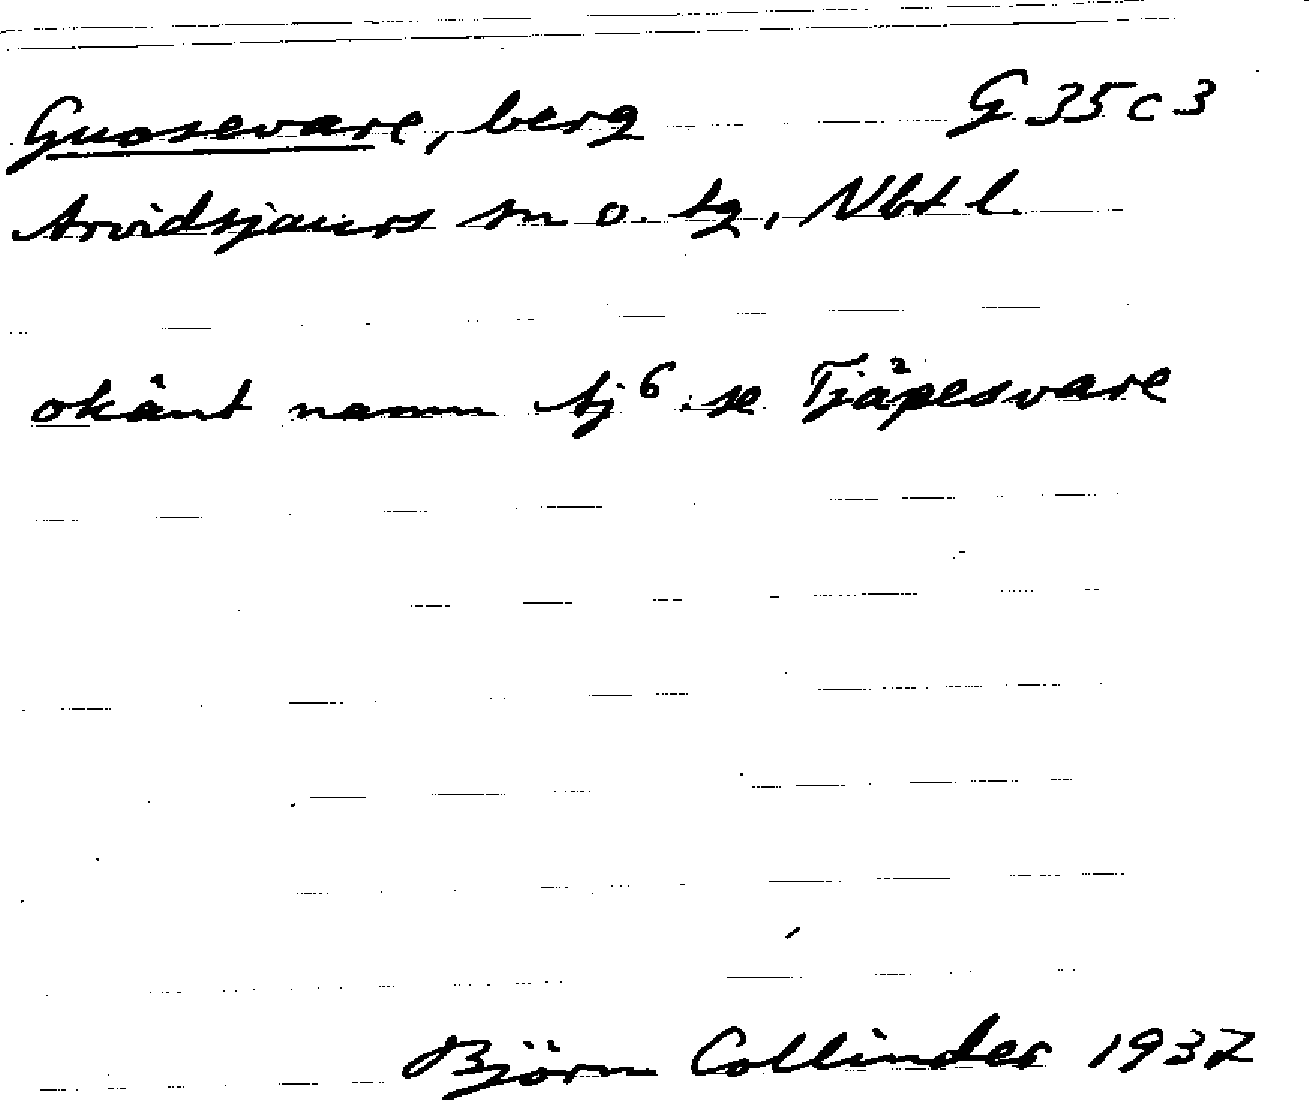 Guosevare, berg G 35 c 3
Arvidsjaurs sn o. tg, Nbt l.
okänt namn Aj 6. se Tjäpesvare
Björn Collinder 1937